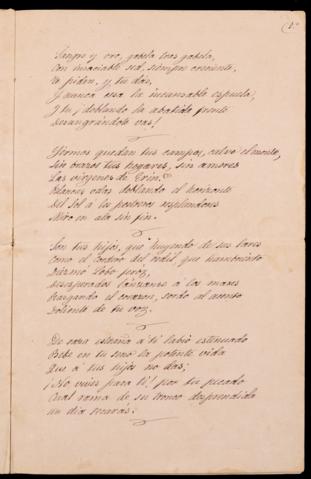 Sangre y oro, gabela tras gabela,
Con insaciable sed, siempre creciente,
Te piden, y tu das,
Y nunca cesa la incansable espuela,
Y tu ¡doblando la abatida frente
Desangrándote vas!
Yermos quedan tus campos, calvo el monte,
Sin brazos tus hogares, sin amores
Las vírgenes de Erin.
Blancas velas doblando el horizonte
Del Sol á los postreros resplandores
Miro en ala sin fin.
Son tus hijos, que huyendo de sus lares
Como el cordero del redil que hambriento
Diezmó lobo feróz,
Desesperados lánzanse á los mares
Rasgando el corazon, sordo al acento
Doliente de tu voz.
De raza estraña á tí labio estenuado
Bebe en tu seno la potente vida
Que á tus hijos no das;
¡No vives para tí! por tu pecado
Cual rama de su tronco desprendida
Un dia secarás!